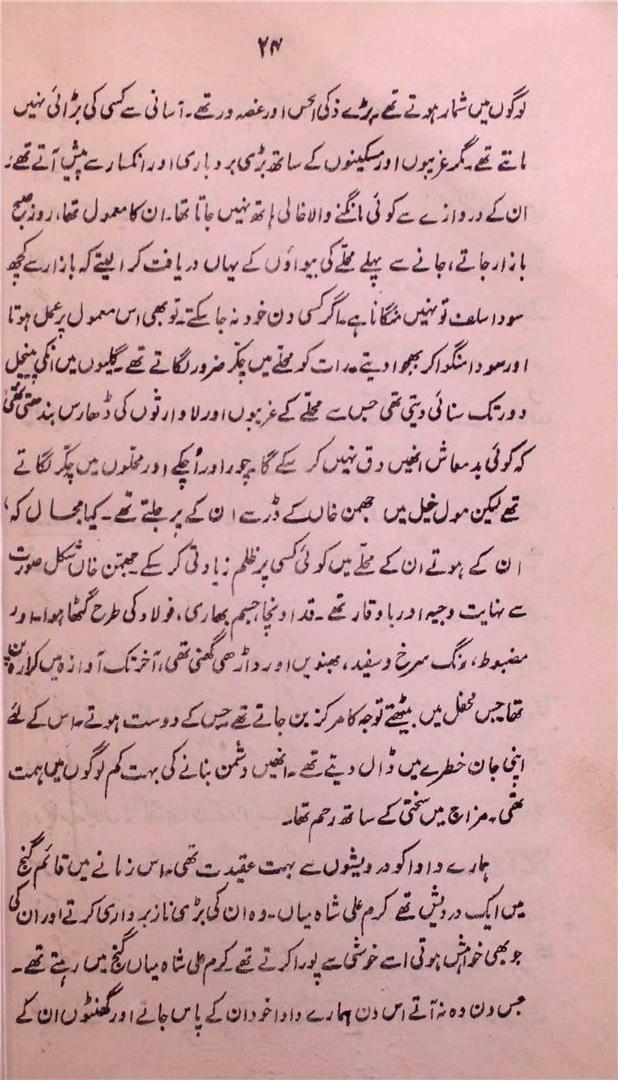 ۲۴
لوگوں میں شمار ہوتے تھے۔ بڑے ذکی الحس اور غصہ ور تھے۔ آسانی سے کسی کی بڑائی نہیں
مانتے تھے۔ مگر غریبوں اور مسکینوں کے ساتھ بڑی بردباری اور انکسار سے پیش آتے تھے۔
ان کے دروازے سے کوئی مانگنے والا خالی ہاتھ نہیں جاتا تھا۔ ان کا معمول تھا، روز صبح
بازار جاتے، جانے سے پہلے محلّے کی بیواؤں کے یہاں دریافت کرا لیتے کہ بازار سے کچھ
سودا سلف تو نہیں منگانا ہے۔ اگر کسی دن خود نہ جا سکتے۔ تو بھی اس معمول پر عمل ہوتا
اور سودا منگوا کر بھجوا دیتے۔ رات کو محلّے میں چکّر ضرور لگاتے تھے۔ گلیوں میں انکی
دور تک سنائی دیتی تھی جس سے محلّے کے غریبوں اور لاوارثوں کی ڈھارس بندھتی تھی
کہ کوئی بدمعاش انھیں دق نہیں کر سکے گا۔ چور اور اُچکے اور محلّوں میں چکّر لگاتے
تھے لیکن مول خیل میں جھمن خاں کے ڈر سے ان کے پر جلتے تھے۔ کیا مجال کہ
ان کے ہوتے ان کے محلّے میں کوئی کسی پر ظلم زیادتی کر سکے۔ جھمّن خاں شکل صورت
سے نہایت وجیہ اور باوقار تھے۔ قد اونچا، جسم بھاری، فولاد کی طرح گٹھا ہوا۔ اور
مضبوط، رنگ سرخ و سفید، بھنویں اور داڑھی گھنی تھی، آخر تک آواز میں کرارہ پن
تھا جس محفل میں بیٹھتے توجہ کا مرکز بن جاتے تھے جس کے دوست ہوتے۔ اس کے لئے
اپنی جان خطرے میں ڈال دیتے تھے۔ انھیں دشمن بنانے کی بہت کم لوگوں میں ہمت
تھی۔ مزاج میں سختی کے ساتھ رحم تھا۔
ہمارے دادا کو درویشوں سے بہت عقیدت تھی۔ اس زمانے میں قائم گنج
میں ایک درویش تھے کرم علی شاہ میاں۔ وہ ان کی بڑی نازبرداری کرتے اور ان کی
جو بھی خواہش ہوتی اسے خوشی سے پورا کرتے تھے کرم علی شاہ میاں گنج میں رہتے تھے۔
جس دن وہ نہ آتے اس دن ہمارے دادا خود ان کے پاس جاتے اور گھنٹوں ان کے